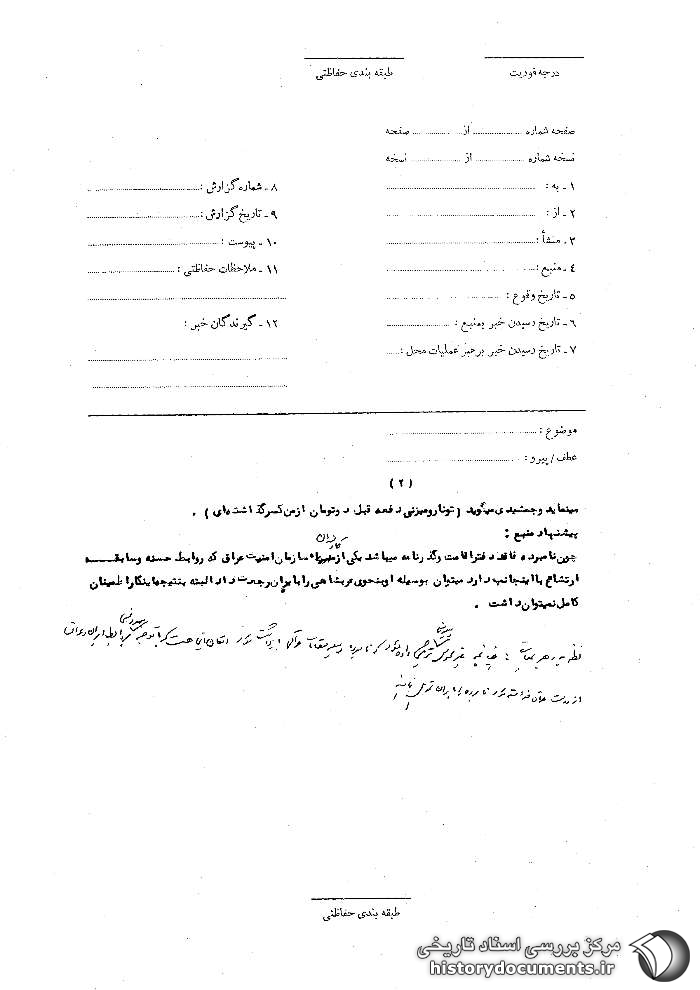 درجه فوریت
طبقه بندی حفاظتی
صفحه شماره ............ از ............ صفحه
نسخه شماره ............ از ............ نسخه
۱ ـ به :
۲ ـ از :
۳ ـ منشأ :
۴ ـ منبع :
۵ ـ تاریخ وقوع :
۶ ـ تاریخ رسیدن خبر بمنبع :
۷ ـ تاریخ رسیدن خبر برهبر عملیات محل :
۸ ـ شماره گزارش :
۹ ـ تاریخ گزارش :
۱۰ ـ پیوست :
۱۱ ـ ملاحظات حفاظتی :
۱۲ ـ گیرندگان خبر :
موضوع :
عطف / پیرو :
(۲)
مینماید وجمشیدی میگوید (تونارومیزنی دفعه قبل دوتومان ازمن کسرگذاشته‌ای) .
پیشنهاد منبع :
چون نامبرده فاقد دفتراقامت وگذرنامه میباشد یکی از کارمندان سازمان امنیت عراق که روابط حسنه وسابقه
ارتشاء بااینجانب دارد میتوان بوسیله اوبنحوی عربشاهی رابایران رجعت داد البته بنتیجه اینکاراطمینان
کامل نمیتوان داشت .
نظریه رهبر عملیات :
از دست عراق نامبرده را بایران
طبقه بندی حفاظتی
مرکز بررسی اسناد تاریخی
historydocuments.ir